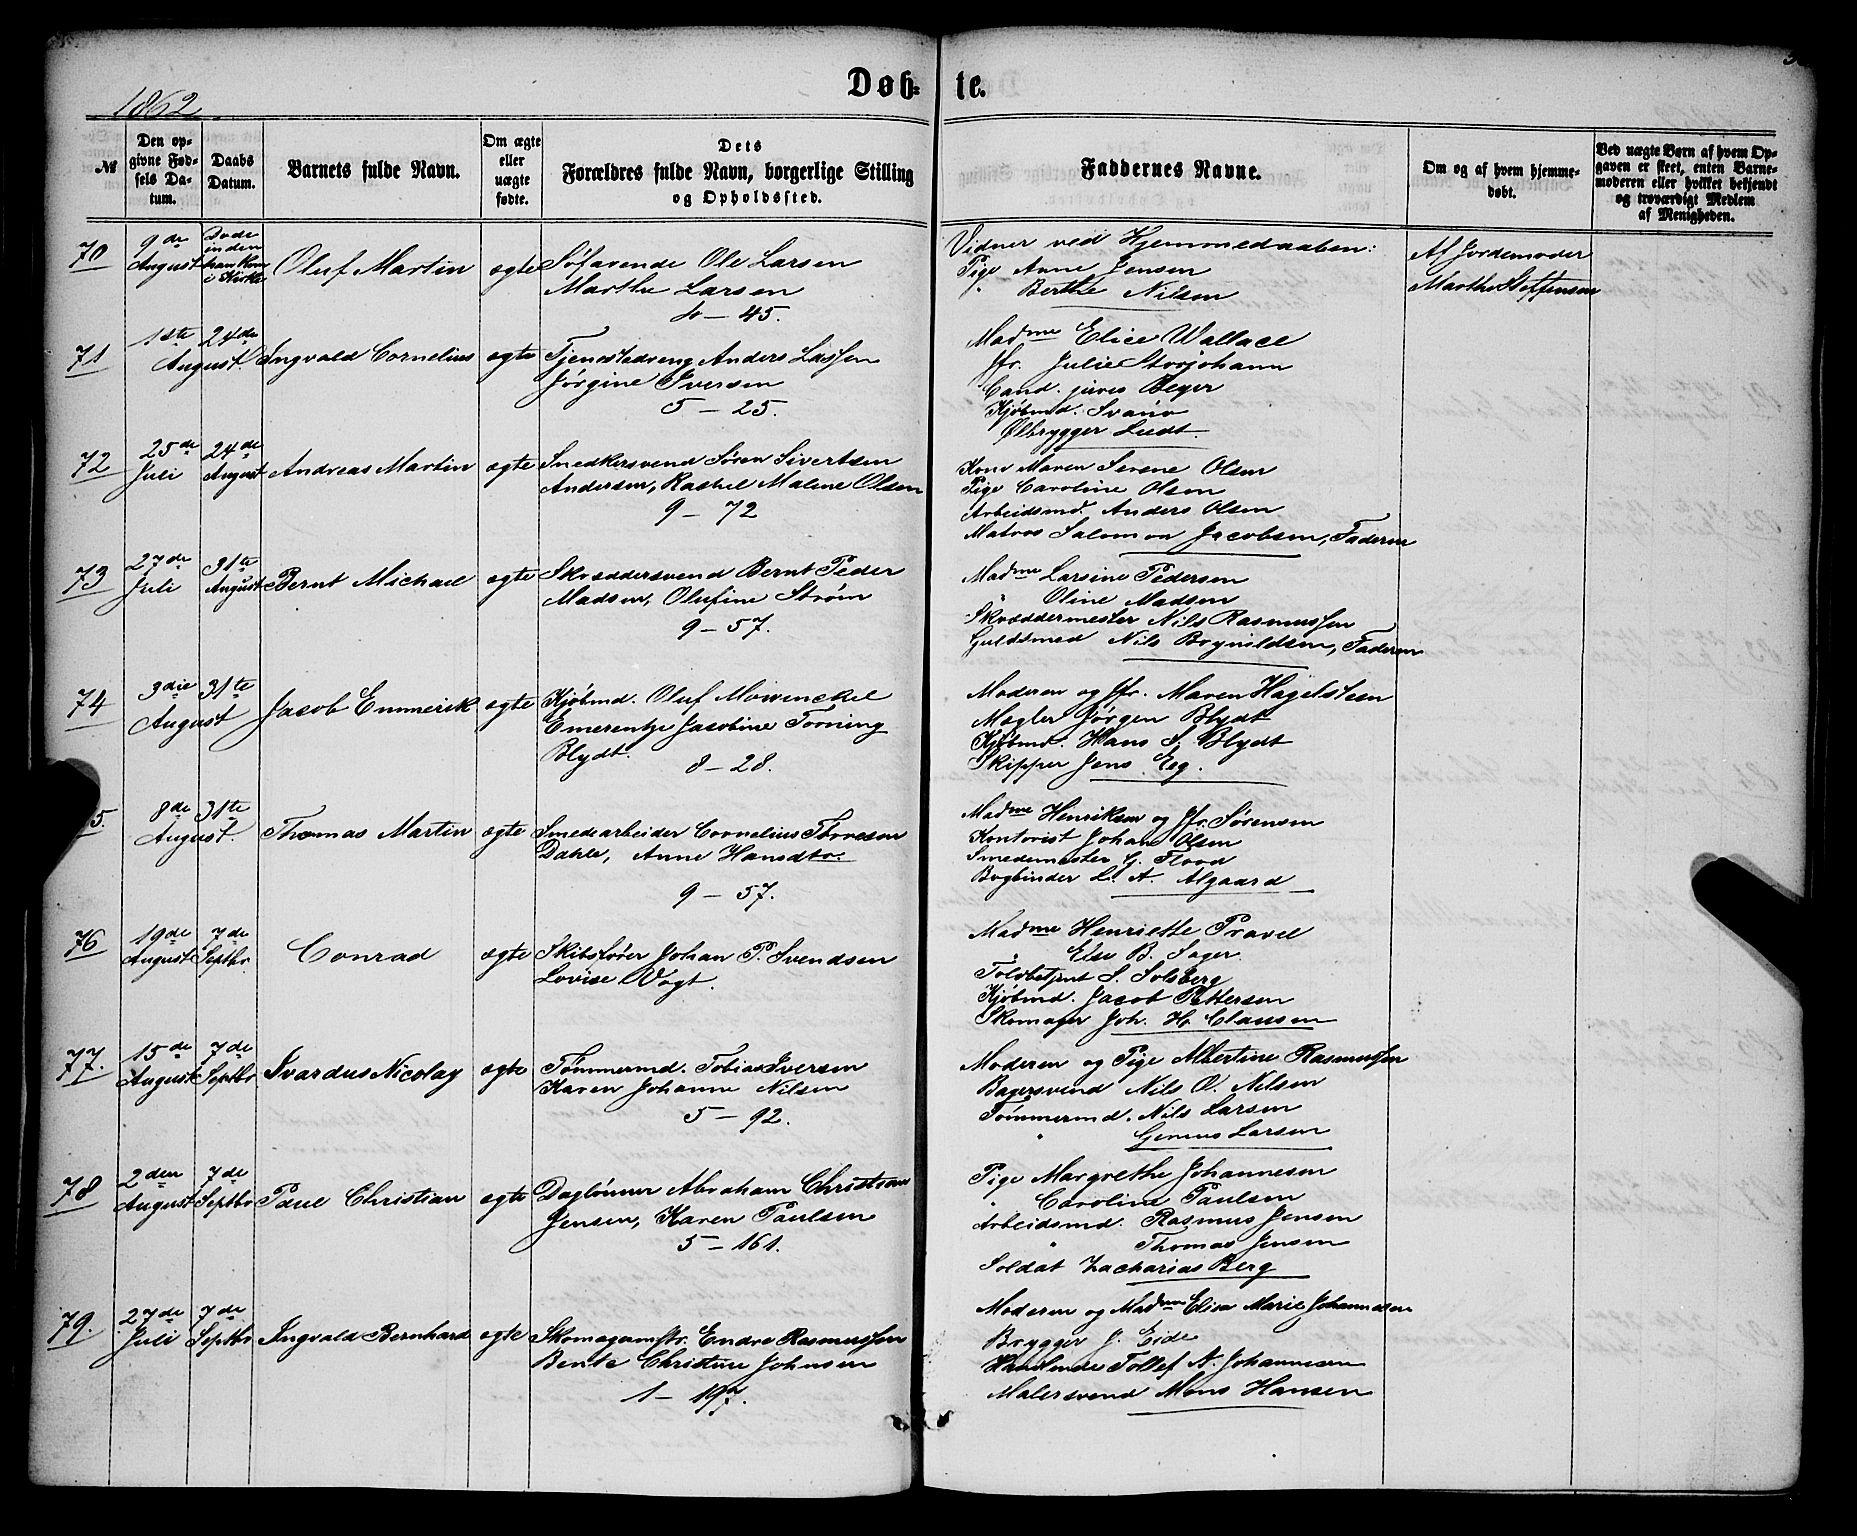 1862
Døb- te.
№
Den op-
givne Fød-
sels Da-
tum.
Daabs
Datum.
Barnets fulde Navn.
Om ægte
eller
uægte
fødte.
Dets
Forældres fulde Navn, borgerlige Stilling
og Opholdssted.
Faddernes Navne.
Om og af hvem hjemme-
døbt.
Ved uægte Børn af hvem Op-
gaven er skeet, enten Barne-
moderen eller hvilket bekjendt
og troværdigt Medlem
af Menigheden.
70
9de
August
Døde
inden
han kom
i Kirke
Oluf Martin
ægte
Søfarende Ole Larsen
Marthe Larsen
45.
Vidner ved Hjemmedaaben:
Pige Anne Jensen
" Berthe Nilsen
Af Jordemoder
Marthe Steffensen
71
1ste 24de
August
Ingvald Cornelius
ægte
Anders Lassen
Jørgine Iversen
5 – 25.
Madme Elice Wallace
Jfr. Julie Storjohann
Cand. juris Beyer
Kjøbmd. Svanø
Ølbrygger Ludt
72
25de
Juli
24de
August
Andreas Martin
ægte
Snedkersvend Søren Sivertsen
Andersen, Rachel Malene Olsen
9 – 72
Kone Maren Serene Olsen
Pige Caroline Olsen
Arbeidsmd. Anders Olsen
Matros Salomon Jacobsen, Faderen
73
27de
Juli
31te
August
Bernt Michael
ægte
Skræddersvend Bernt Peder
Madsen, Olufine Strøm
9 – 57.
Madme Larsine Pedersen
" Oline Madsen
Skræddermester Nils Rasmussen
Guldsmed Nils Bognildsen, Faderen
74
3die 31te
August
Jacob Emmerik
ægte
Kjøbmd. Oluf Mowinckel
Emerentze Jacobine Forning
Blydt.
8 – 28.
Moderen og Jfr. Maren Hagelsteen
Mægler Jørgen Blydt
Kjøbmd. Hans S. Blydt
Skipper Jens Eeg.
5.
8de 31te
August.
Thomas Martin
ægte
Smedearbeider Cornelius Thoresen
Dahle, Anne Hansdtr.
9 – 57.
Madme Henriksen og Jfr. Sørensen
Kontorist Johan Olsen
Smedemester G. Flood
Bogbinder L. A. Algaard
76
19de
August
7de
Septbr.
Conrad
ægte
Skibsfører Johan P. Svendsen
Lovise Vogt.
Madme Henriette Pravel
" Else B. Sager
Toldbetjent S. Solberg
Kjøbmd. Jacob Pettersen
Skomager Joh. H. Clausen
77.
15de
August
7de
Septbr
Ivardus Nicolay
ægte
Tømmermd. Tobias Iversen
Karen Johanne Nilsen
5 – 92.
Moderen og Pige Albertine Rasmussen
Bagersvend Nils O. Nilsen
Tømmermd. Nils Larsen
" Larsen
78
2den
August
7de
Septbr
Paul Christian
ægte
Daglønner Abraham Christian
Jensen, Karen Paulsen
5 – 161.
Pige Margrethe Johannesen
" Caroline Paulsen
Arbeidsmd. Rasmus Jensen
" Thomas Jensen
Soldat Zacharias Berg
79.
27de
Juli
7de
Septbr
Ingvald Bernhard
ægte
Skomagermstr. Endre Rasmussen
Bente Christine Johnsen
1 – 197.
Moderen og Madme Elisa Marie Johannesen
Brygger J. Eide
Handlende Tollef A. Johannesen
Malersvend Mons Hansen